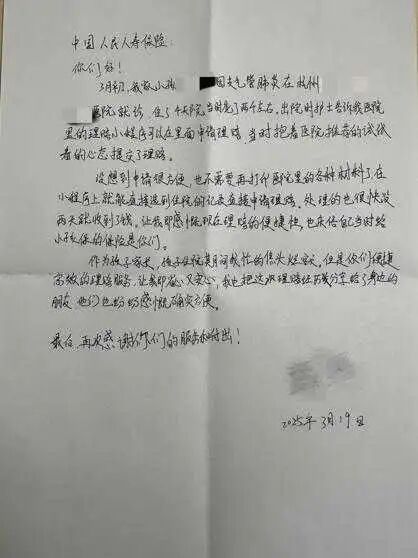 中国人民人寿保险：
你们好！
3月初，我家小孩 因支气管肺炎在杭州
医院就诊，住了4天院，当时花了两千左右。出院时护士告诉我医院
里的理赔小程序可以在里面申请理赔，当时抱着医院推荐的试试
看的心态提交了理赔。
没想到申请很方便，也不需要再打印医院里的各种材料了，在
小程序上就能直接选到住院的记录直接申请理赔，处理的也很快，没
两天就收到了钱。让我即感慨现在理赔的便捷性，也庆信自己当时给
小孩保的保险是你们。
作为孩子家长，孩子住院期间我忙的焦头烂额，但是你们便捷
高效的理赔服务，让我即省心又安心，我也把这次理赔经历分享给了身边的
朋友，他们也纷纷感慨确实方便。
最后，再次感谢你们的服务和付出！
2025年3月19日